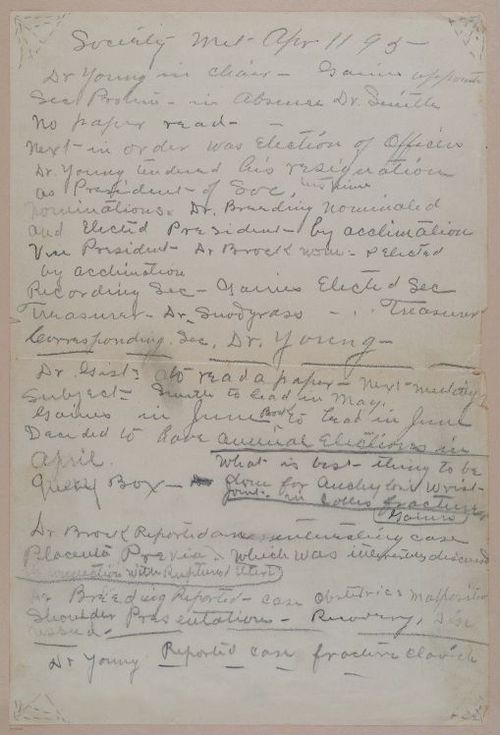 Society Met Apr 11 95 -
Dr Young in chair - Gaines appointed
Sec Protem - in Absence Dr. Smith
No paper read -
Next - in order was Election of Officers
Dr. Young tendered his resignation
as President of Soc,
nominations. Dr. Breeding nominated
and Elected President - by acclimation
Vice President - Dr Brock nom - & elected
by acclimation
Recording Sec - Gaines Elected Sec
Treasurer - Dr. Snodgrass - . . Treasurer
Corresponding. Sec. Dr. Young -
Dr. to read a paper - Next meeting
Subject - Smith to lead in May.
Gaines in June Brock to lead in June
Decided to have annual Elections in
April. What is best - thing to be
Query Box - done for Anchylosis wrist
joint - in Colles fracture
Gaines
Dr Brock Reported an interesting case
Placenta Previa. Which was discussed
connection with Ruptured Uteri
Dr Breeding Reported - case Obstetrics
Shoulder Presentations - Recovery,
Dr Young Reported case fracture clavicle